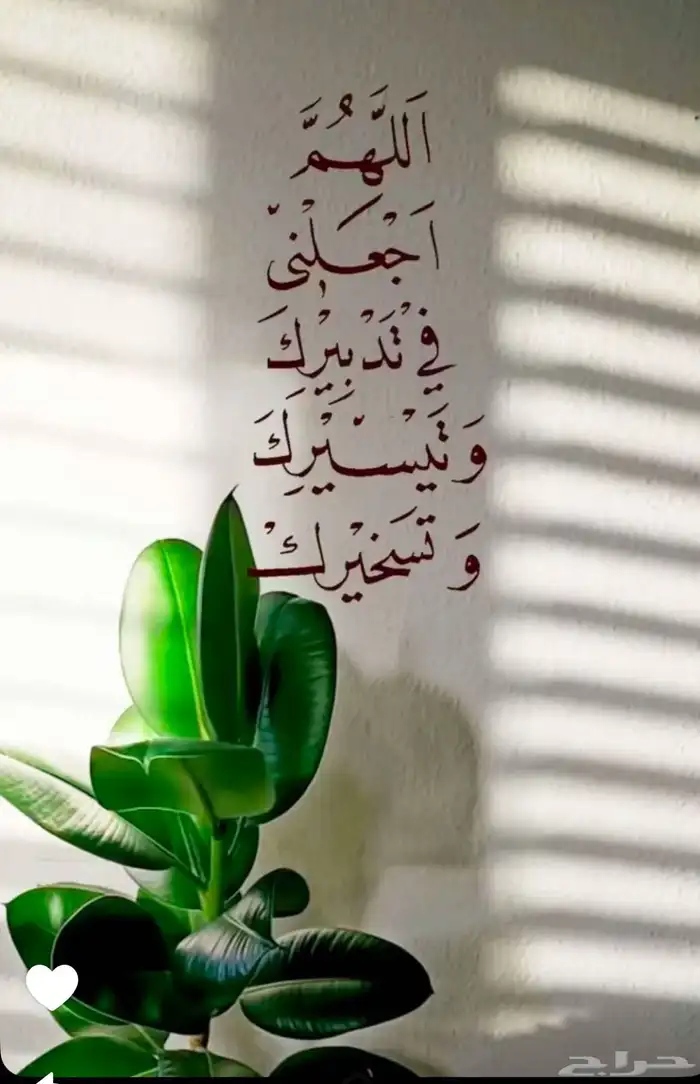 اَللَّهُمَّ
اَجْعَلْنيْ
فِيْ تَدْبِيْرِكَ
وَ تَيْسّيْرِكَ
وَ تَسَخيْرِكْ
حراج